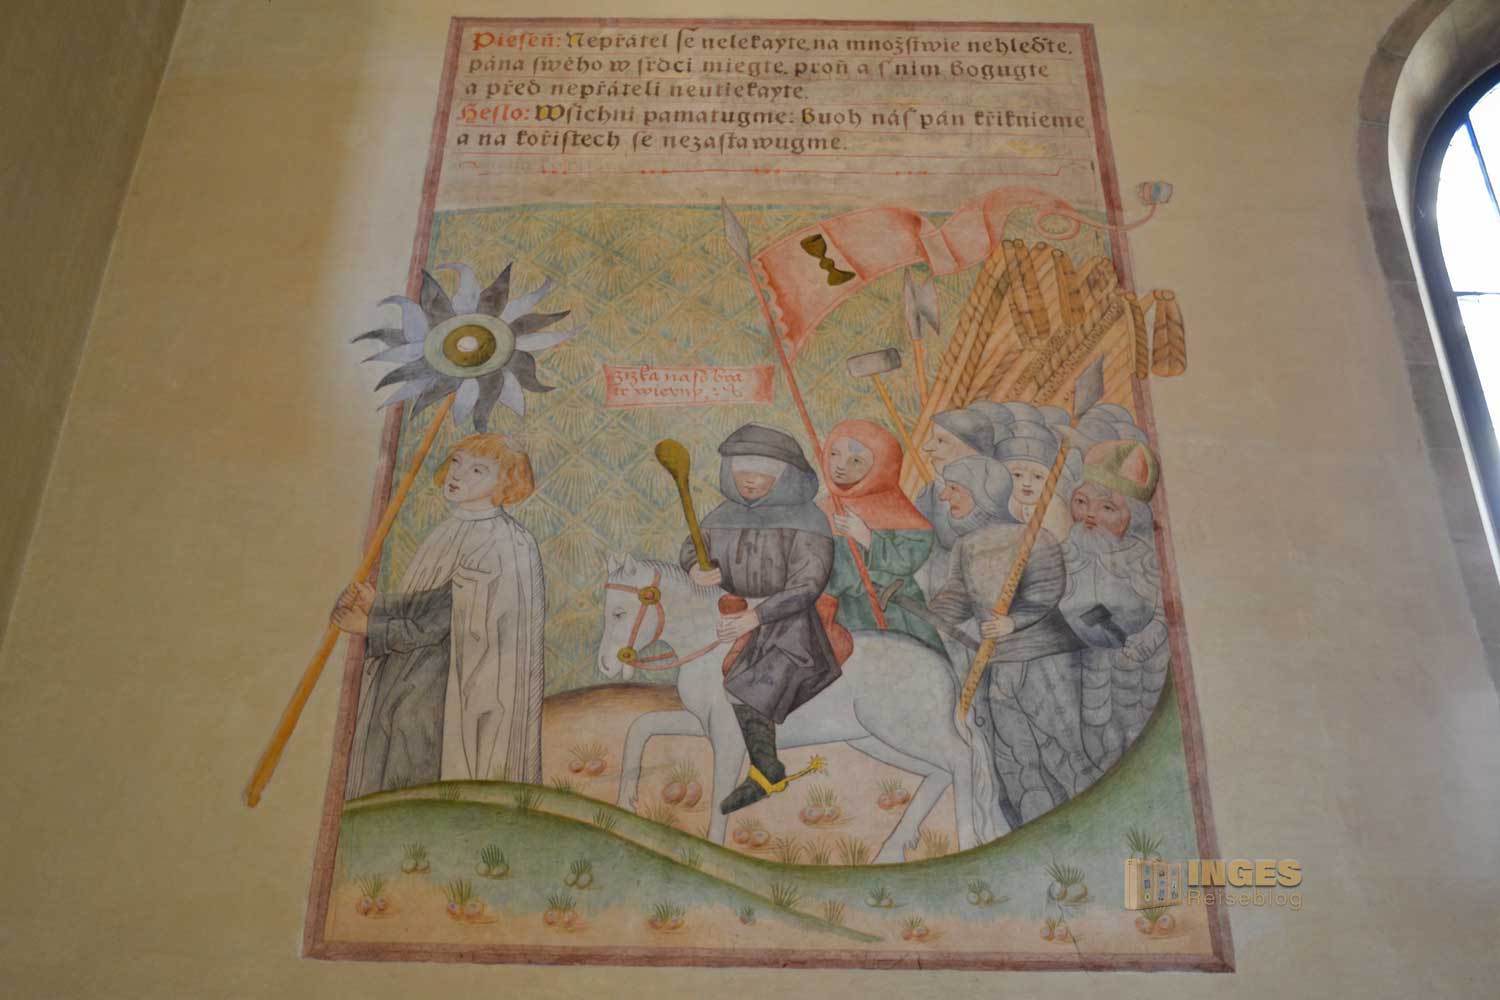 Pieseň: Nepřátel se nelekayte, na množstwie nehleďte,
pána swého w srdci miegte, proň a s nim bogugte
a před nepřáteli neutiekayte.
Heslo: Wsichni pamatugme: Buoh náš pán křiknieme
a na kořistech se nezastawugme.
zizka nasd bra
tr wierny,
INGES
Reiseblog